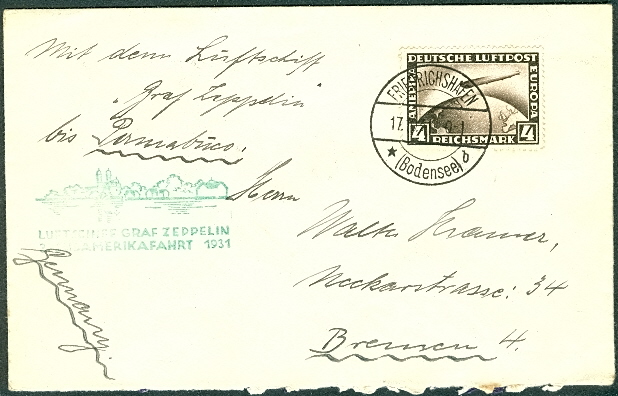 Mit dem Luftschiff
"Graf Zeppelin"
bis Pernabuco.
DEUTSCHE LUFTPOST
AMERIKA
EUROPA
4 REICHSMARK 4
FRIEDRICHSHAFEN
17.
(Bodensee) d
LUFTSCHIFF GRAF ZEPPELIN
SÜDAMERIKAFAHRT 1931
Herrn
Walter Kramer,
Neckarstrasse: 34
Bremen 4.
Germany